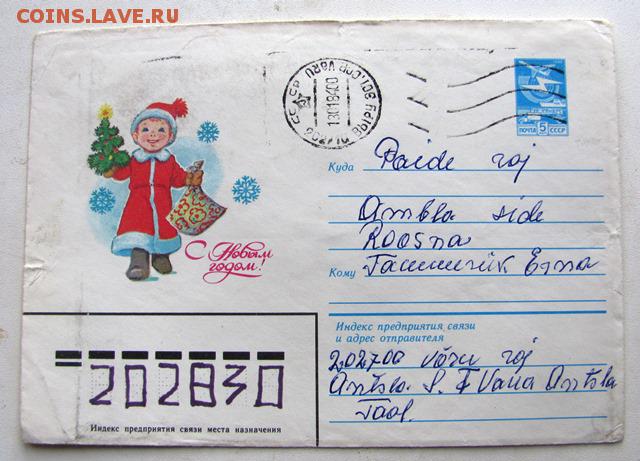 COINS.LAVE.RU
СССР ВЫРУ ЭСТ.ССР VÕRU
202710
13018400
ПОЧТА 5 СССР
С Новым
годом!
Куда Paide raj
Ambla side
Roosna
Кому Tammerik Erna
Индекс предприятия связи
и адрес отправителя
202700 Võru raj
Antsla S. Vana Antsla
202830
Индекс предприятия связи места назначения